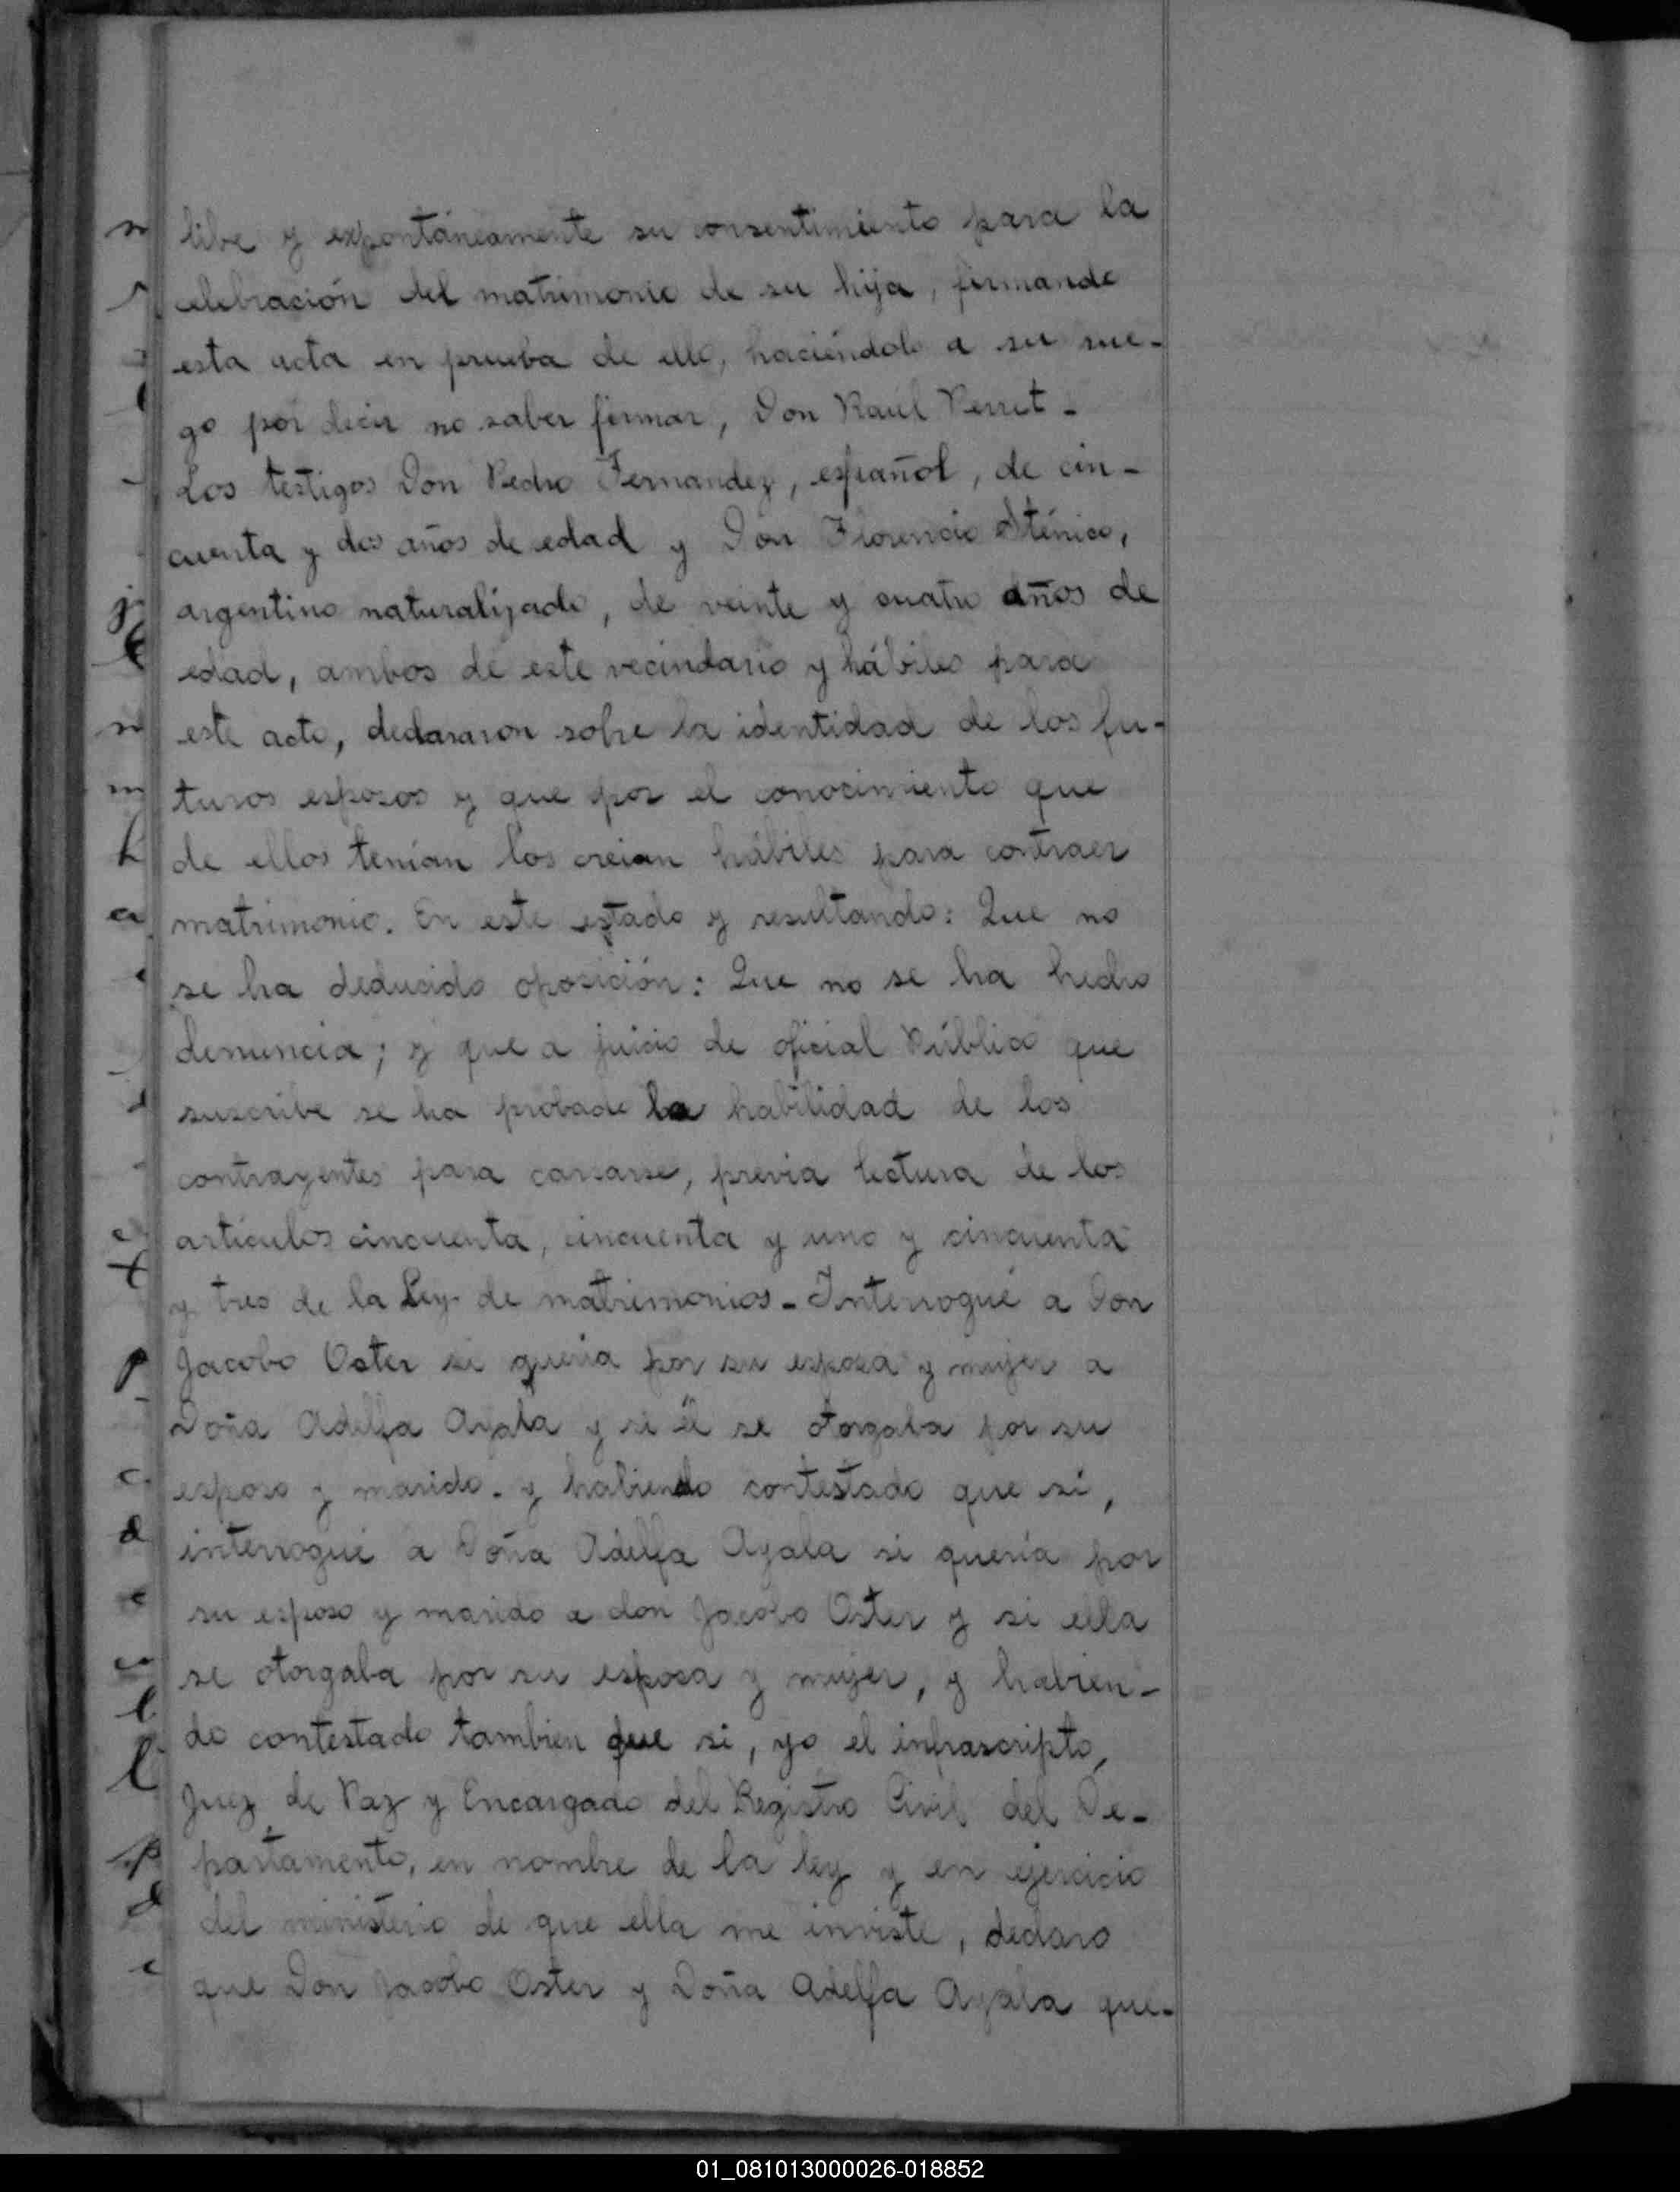 libre y expontáneamente su consentimiento para la
celebración del matrimonio de su hija, firmando
esta acta en prueba de ello, haciéndolo a su rue-
go por decir no saber firmar, Don Raúl Perret -
Los testigos Don Pedro Fernandez, español, de cin-
cuenta y dos años de edad y Don Florencio
argentino naturalizado, de veinte y cuatro años de
edad, ambos de este vecindario y hábiles para
este acto, declararon sobre la identidad de los fu-
turos esposos y que por el conocimiento que
de ellos tenían los creian hábiles para contraer
matrimonio. En este estado y resultando: Que no
se ha deducido oposición: Que no se ha hecho
denuncia; y que a juicio de oficial Público que
suscribe se ha probado la habilidad de los
contrayentes para carsarse, previa lectura de los
artículos cincuenta, cincuenta y uno y cincuenta
y tres de la Ley de matrimonios - Interrogué a Don
Jacobo Oster si quería por su esposa y mujer a
Doña Adelfa Ayala y si él se otorgaba por su
esposo y marido. y habiendo contestado que sí,
interrogué a Doña Adelfa Ayala si quería por
su esposo y marido a don Jacobo Oster y si ella
se otorgaba por su esposa y mujer, y habien-
do contestado tambien que si, yo el infrascripto,
Juez de Paz y Encargado del Registro Civil del De-
partamento, en nombre de la ley y en ejercicio
del ministerio de que ella me inviste, declaro
que Don Jacobo Oster y Doña Adelfa Ayala que-
01_081013000026-018852